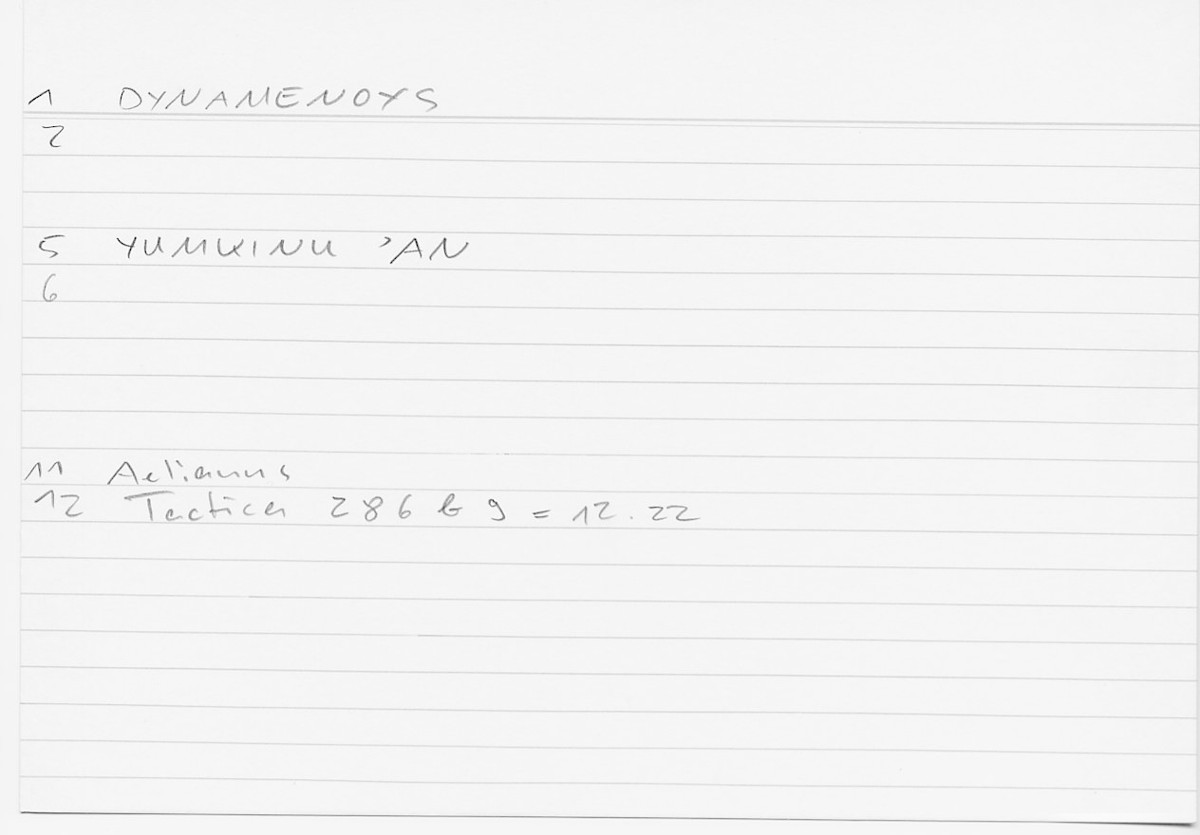 1 DYNAMENOYS
2
5 YUMKINU 'AN
6
11 Aelianus
12 Tactica 286 b 9 = 12.22